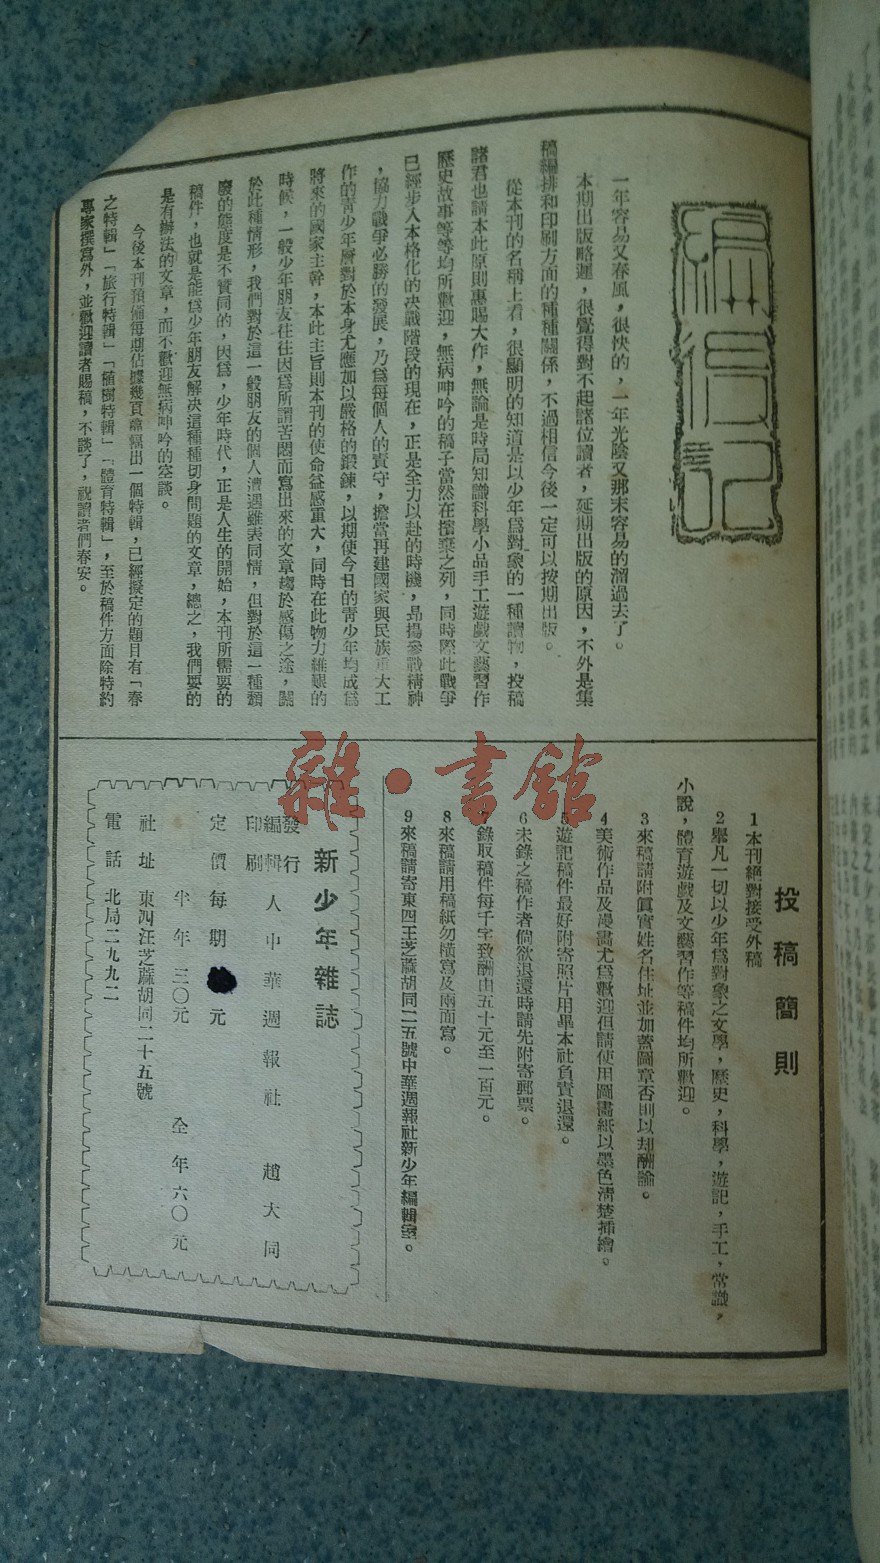 編後記
一年容易又春風，很快的，一年光陰又那末容易的溜過去了。
本期出版略遲，很覺得對不起諸位讀者，延期出版的原因，不外是集
稿編排和印刷方面的種種關係，不過相信今後一定可以按期出版。
從本刊的名稱上看，很顯明的知道是以少年爲對象的一種讀物，投稿
諸君也請本此原則惠賜大作，無論是時局知識科學小品手工遊戲文藝習作
歷史故事等等均所歡迎，無病呻吟的稿子當然在擯棄之列，同時際此戰爭
已經步入本格化的決戰階段的現在，正是全力以赴的時機，昻揚參戰精神
，協力戰爭必勝的發展，乃爲每個人的責守，擔當再建國家與民族重大工
作的靑少年層對於本身尤應加以嚴格的鍛鍊，以期使今日的靑少年均成爲
將來的國家主幹，本此主旨則本刊的使命益感重大，同時在此物力維艱的
時候，一般少年朋友往往因爲所謂苦悶而寫出來的文章趨於感傷之途，關
於此種情形，我們對於這一般朋友的個人遭遇雖表同情，但對於這一種頹
廢的態度是不贊同的，因爲，少年時代，正是人生的開始，本刊所需要的
稿件，也就是能爲少年朋友解決這種種切身問題的文章，總之，我們要的
是有辦法的文章，而不歡迎無病呻吟的空談。
今後本刊預備每期佔據幾頁篇幅出一個特輯，已經擬定的題目有「春
之特輯」「旅行特輯」「植樹特輯」「體育特輯」，至於稿件方面除特約
專家撰寫外，並歡迎讀者賜稿，不談了，祝讀者們春安。
投稿簡則
1本刊絕對接受外稿
2舉凡一切以少年爲對象之文學，歷史，科學，遊記，手工，常識，
小說，體育遊戲及文藝習作等稿件均所歡迎。
3來稿請附眞實姓名住址並加蓋圖章否則以却酬論。
4美術作品及漫畵尤爲歡迎但請使用圖畵紙以墨色淸楚揷繪。
5遊記稿件最好附寄照片用畢本社負責退還。
6未錄之稿作者倘欲退還時請先附寄郵票。
7錄取稿件每千字致酬由五十元至一百元。
8來稿請用稿紙勿橫寫及兩面寫。
9來稿請寄東四王芝蔴胡同二五號中華週報社新少年編輯室。
新少年雜誌
發行
編輯人中華週報社 趙大同
印刷
定價每期 元
半年三〇元 全年六〇元
社址 東四汪芝蔴胡同二十五號
電話 北局二九九二
雜·書館